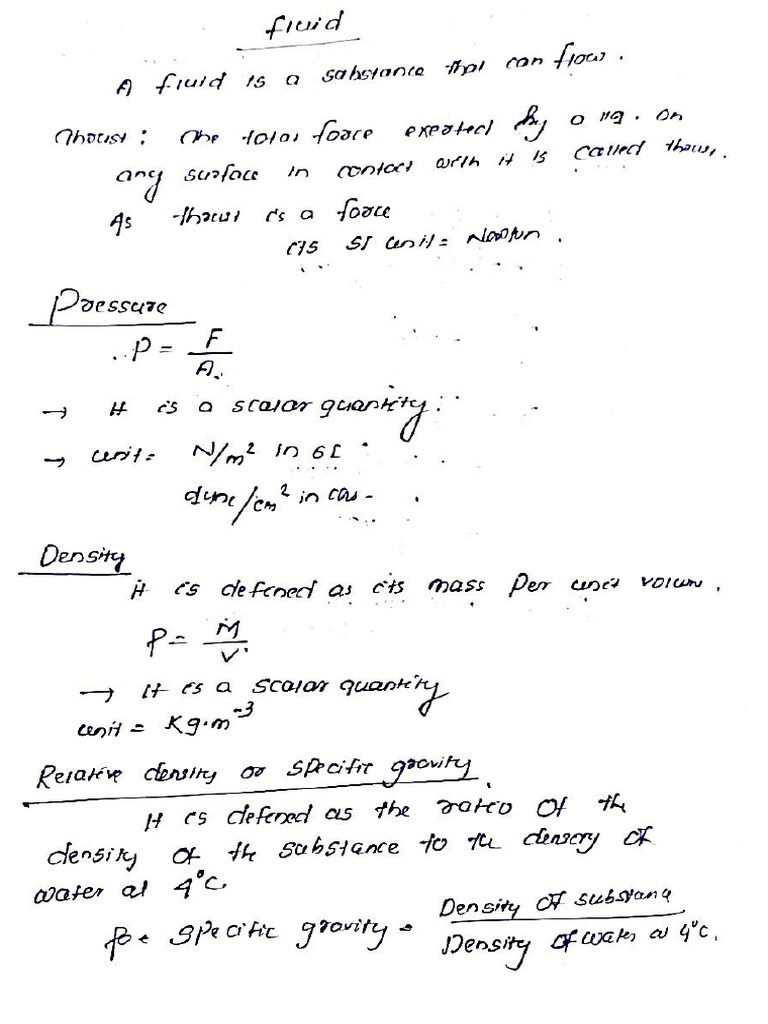 fluid
A fluid is a substance that can flow.
Thrust: The total force exerted by a liq. on
any surface in contact with it is called thrust.
As thrust is a force
its SI unit = Newton.
Pressure
P = F/A
→ It is a scalar quantity.
→ unit = N/m² in SI
dyne/cm² in CGS
Density
it is defined as its mass per unit volum.
ρ = M/V
→ It is a scalar quantity
unit = Kg.m⁻³
Relative density or specific gravity.
It is defined as the ratio of the
density of the substance to the density of
water at 4°C.
specific gravity = Density of substance / Density of water at 4°C.